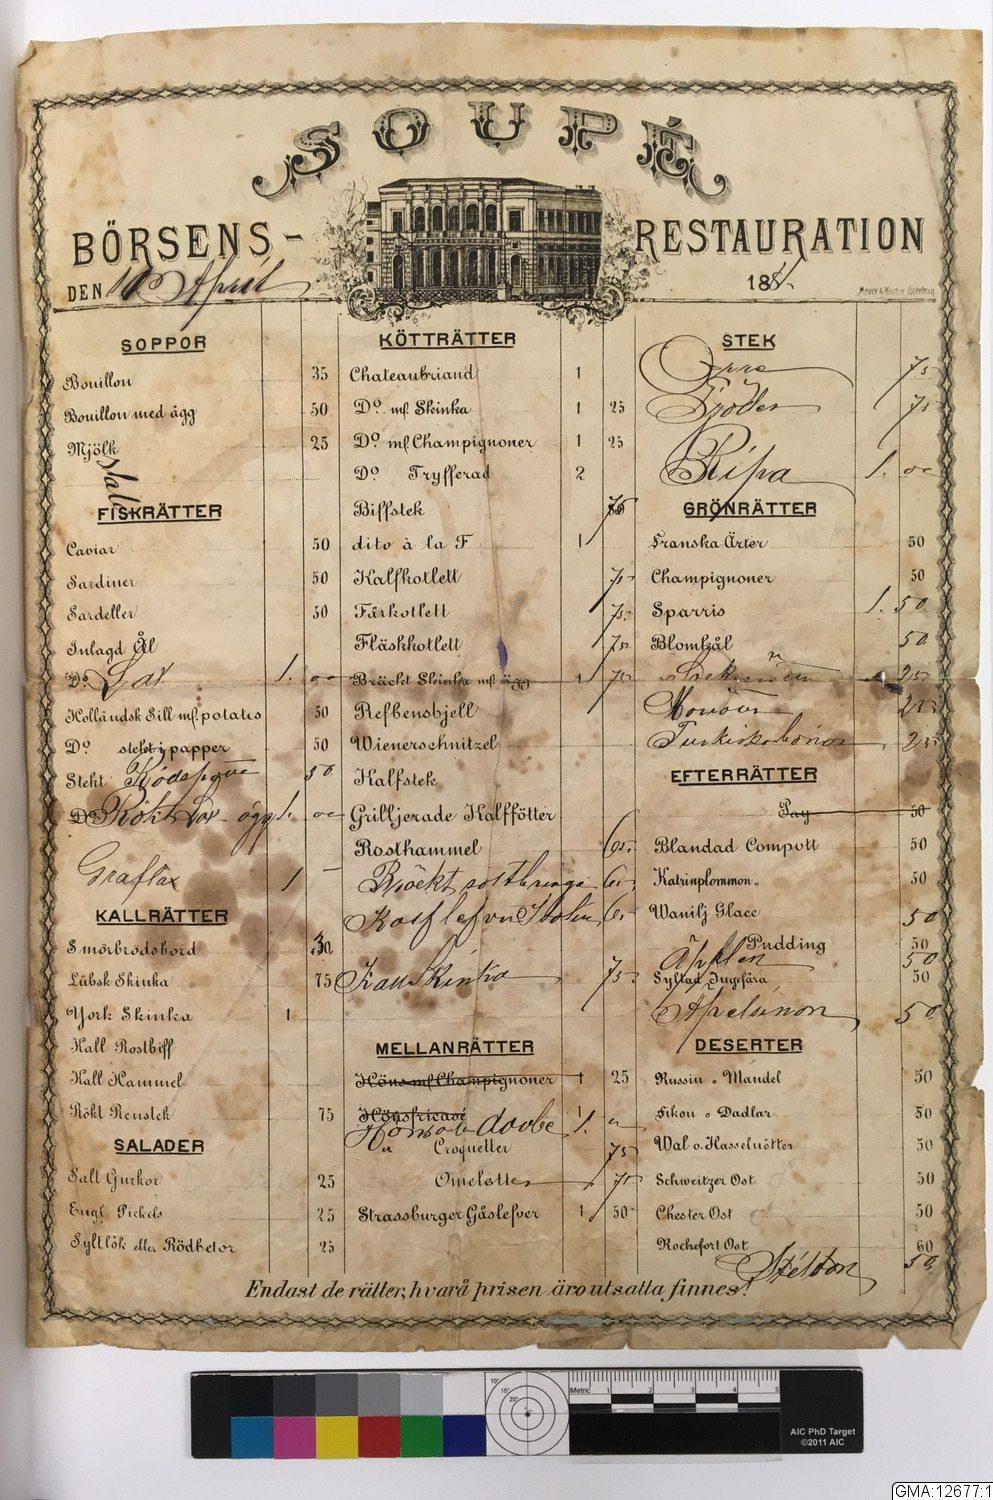 SOUPÉ
BÖRSENS-
RESTAURATION
DEN 10 April
188
Meyer & Köster, Göteborg
SOPPOR
Bouillon 35
Bouillon med ägg 50
Mjölk 25
FISKRÄTTER
Caviar 50
Sardiner 50
Sardeller 50
Inlagd Ål
Do. Lax 1. 00
Holländsk Sill m/ potates 50
Do. stekt i papper 50
Stekt Rödspätta 50
Do. Rökt Lax ägg 1. 00
Graflax 1 –
KALLRÄTTER
Smörbrödsbord 30
Lübsk Skinka 75
York Skinka 1
Kall Rostbiff
Kall Hammel
Rökt Renstek 75
SALADER
Salt Gurkor 25
Engl. Pickels 25
Syltlök eller Rödbetor 25
KÖTTRÄTTER
Chateaubriand 1
Do. m/ Skinka 1 25
Do. m/ Champignoner 1 25
Do. Tryfferad 2
Biffstek 75
dito à la F 1
Kalfkotlett 75
Fårkotlett 75
Fläskkotlett 75
Bräckt Skinka m/ ägg 1 75
Refbensbjell
Wienerschnitzel
Kalfstek
Grilljerade Kalffötter
Rosthammel 60
Bräckt saltbringa 60
Kalflefver 60
Kall Skinka 75
MELLANRÄTTER
Höns m/ Champignoner 1 25
Hönsfricasé 1
Höns doube 1.
Croquetter 75
Omeletter 75
Strassburger Gåslefver 1 50
STEK
Orre 75
Tjäder 75
Ripa 1. 00
GRÖNRÄTTER
Franska Ärter 50
Champignoner 50
Sparris 1. 50
Blomkål 50
25
Morötter 25
Turkiska bönor 25
EFTERRÄTTER
Pay 50
Blandad Compott 50
Katrinplommon „ 50
Wanilj Glace 50
Pudding 50
Äpplen 50
Syltad Ingefära 50
Apelsinon 50
DESERTER
Russin o Mandel 50
Fikon o Dadlar 50
Wal o. Hasselnötter 50
Schweitzer Ost 50
Chester Ost 50
Rochefort Ost 60
Stilton 50
Endast de rätter, hvarå prisen äro utsatta finnes!
10°
15°
25°
Metric 1 2 3 4 5
AIC PhD Target
©2011 AIC
GMA:12677:1